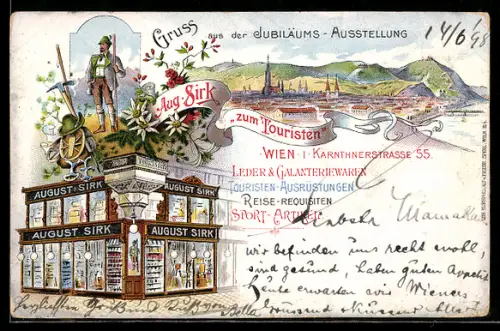 Gruss aus der JUBILÄUMS - AUSSTELLUNG
14/6 98
Aug. Sirk
"zum Touristen"
WIEN I KÄRNTHNERSTRASSE 55.
LEDER & GALANTERIEWAREN
TOURISTEN-AUSRÜSTUNGEN
REISE-REQUISITEN
SPORT-ARTIKEL
AUGUST SIRK
AUGUST SIRK
AUGUST SIRK
AUGUST SIRK
Liebste Mama
wir befinden uns recht wohl,
sind gesund, haben guten
heute erwarten wir Wiener
tausend
herzlichsten Gruß und Kuß von